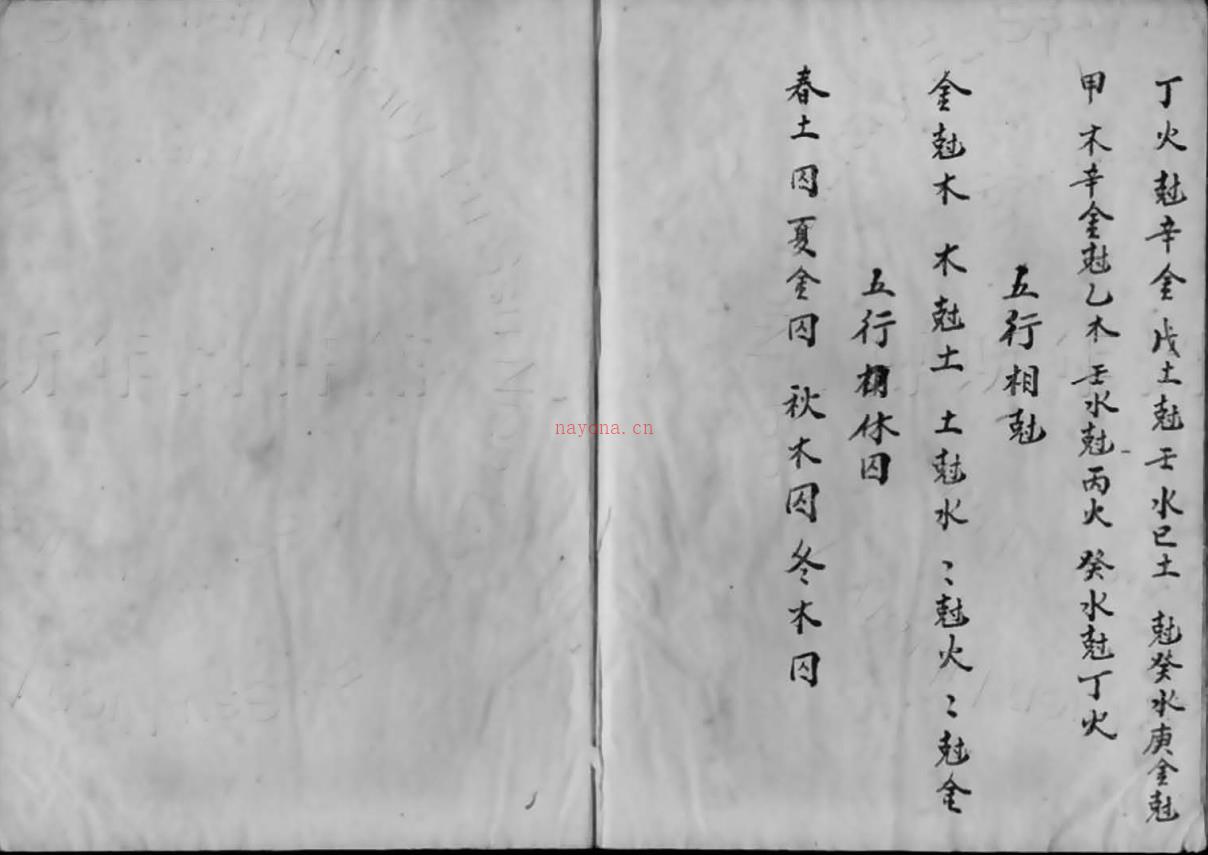 丁火尅辛金戊土尅壬水已土尅癸水庚金尅
甲木辛金尅乙木壬水尅丙火癸水尅丁火
五行相尅
金尅木 木尅土 土尅水〻尅火〻尅金
五行相休囚
春土囚夏金囚 秋木囚冬木囚
nayona.cn